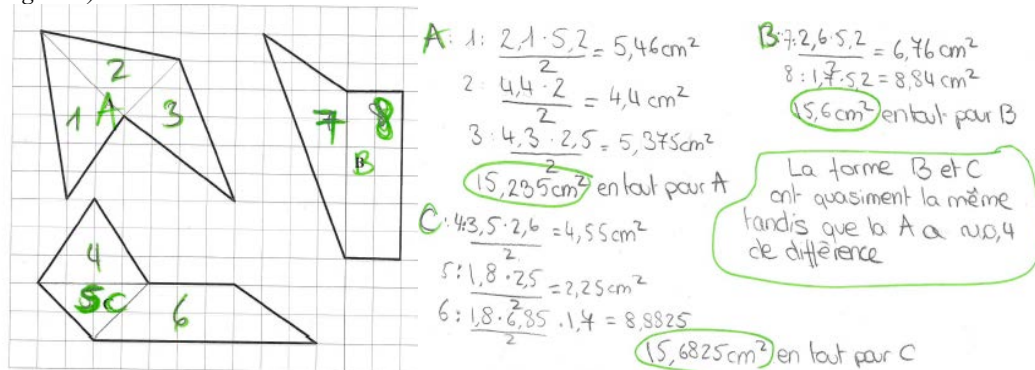 2
1 A 3
7 8
B
B
4
5 C 6
A: 1: 2,1 · 5,2 / 2 = 5,46 cm²
2: 4,4 · 2 / 2 = 4,4 cm²
3: 4,3 · 2,5 / 2 = 5,375 cm²
15,235 cm² en tout pour A
C: 4: 3,5 · 2,6 / 2 = 4,55 cm²
5: 1,8 · 2,5 / 2 = 2,25 cm²
6: 1,8 · 6,85 / 2 · 1,7 = 8,8825
15,6825 cm² en tout pour C
B: 7: 2,6 · 5,2 / 2 = 6,76 cm²
8: 1,7 · 5,2 = 8,84 cm²
15,6 cm² en tout pour B
La forme B et C
ont quasiment la même
tandis que la A a ~0,4
de différence